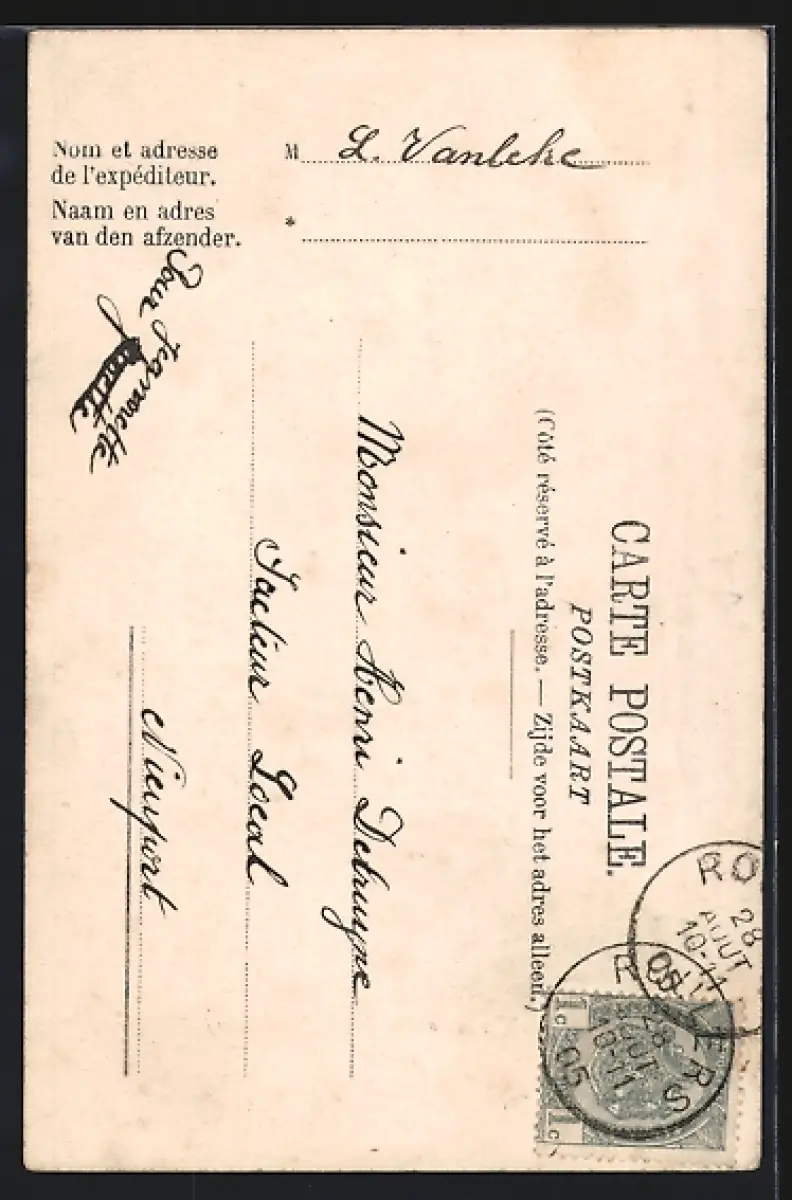 Nom et adresse
de l'expéditeur.
Naam en adres
van den afzender.
M L. Vanleke
*
CARTE POSTALE.
POSTKAART
(Côté réservé à l'adresse. — Zijde voor het adres alleen.)
Monsieur Henri Detruyne
Facteur Local
Nieuport
Pour Jeannette
ROULERS
28
AOUT
10-11
05
1c
1c